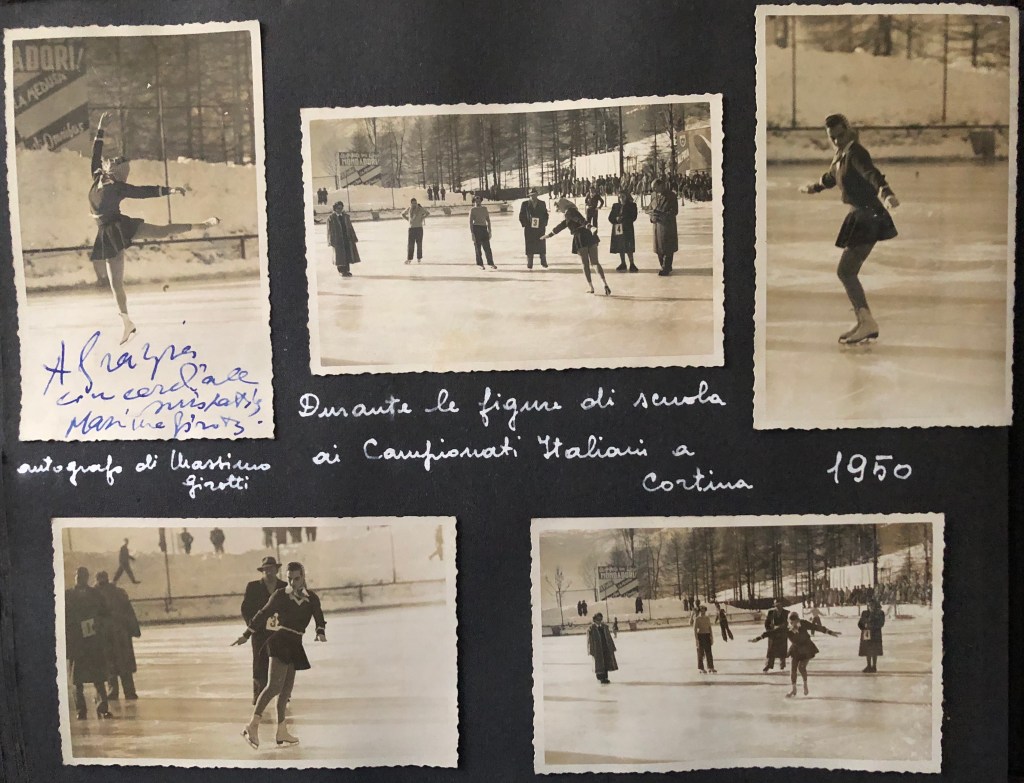 ADORI!
LA MEDUSA
Omnibus
A Grazia
con cordiale
simpatia
Massimo Girotti
autografo di Massimo
Girotti
MONDADORI
Durante le figure di scuola
ai Campionati Italiani a
Cortina
1950